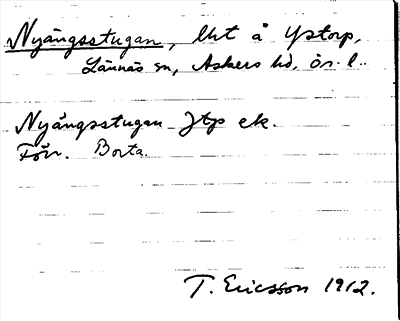 Nyängsstugan, lht å Ystorp,
Lännäs sn, Askers hd, ör. l.
Nyängsstugan Jtp ek.
Förr. Borta.
T. Ericsson 1912.